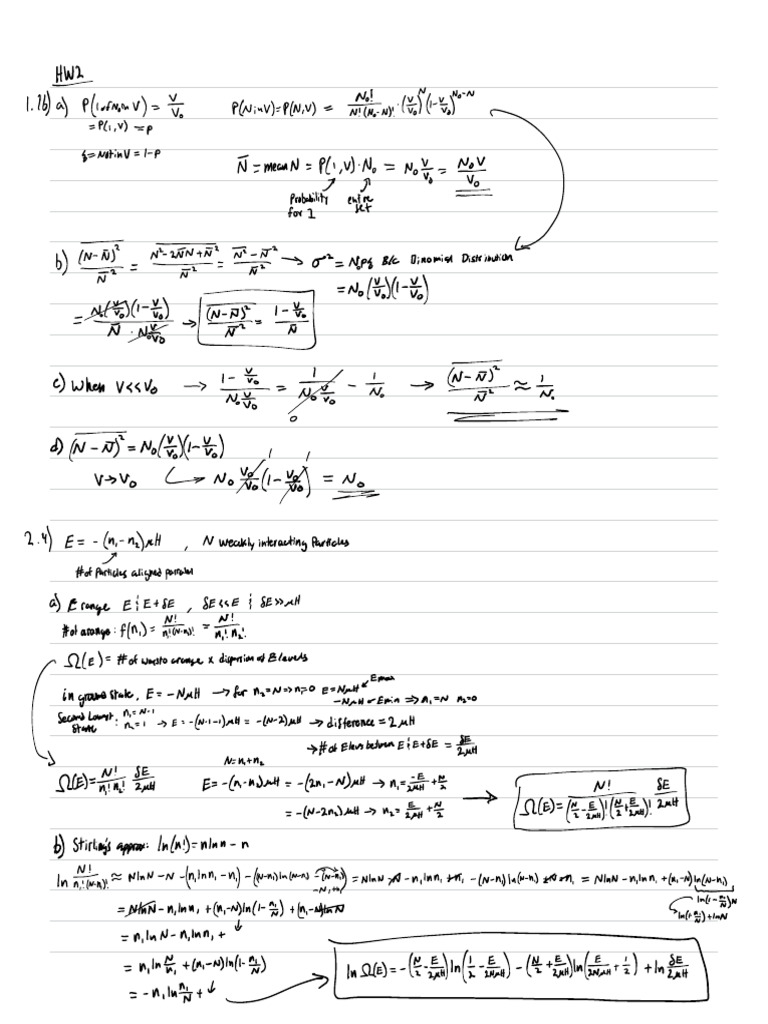 HW2
1.16) a) P(1 of N₀ in V) = V/V₀    P(N in V) = P(N,V) = N₀!/(N!(N₀-N)!) · (V/V₀)^N (1-V/V₀)^(N₀-N)
= P(1,V) = p
q = Not in V = 1-P
N̄ = mean N = P(1,V)·N₀ = N₀ V/V₀ = N₀V/V₀
Probability for 1    entire set
b) \overline{(N-N̄)²}/N̄² = \overline{N²-2N̄N+N̄²}/N̄² = (\overline{N²}-N̄²)/N̄² → σ² = N₀pq B/c Binomial Distribution
= N₀(V/V₀)(1-V/V₀)
= N₀(V/V₀)(1-V/V₀)/(N̄ · N₀V/V₀) → \overline{(N-N̄)²}/N̄² = (1-V/V₀)/N̄
c) When V<<V₀ → (1-V/V₀)/(N₀V/V₀) = 1/(N₀V/V₀) - 1/N₀ → \overline{(N-N̄)²}/N̄² ≈ 1/N₀
0
d) \overline{(N-N̄)²} = N₀(V/V₀)(1-V/V₀)
V→V₀ ↳ N₀ V₀/V₀ (1-V₀/V₀) = N₀
1 1
2.4) E = -(n₁-n₂)μH , N weakly interacting Particles
# of Particles aligned parallel
a) E range E & E+δE , δE<<E & δE>>μH
# of arange: f(n₁) = N!/(n₁!(N-n₁)!) = N!/(n₁!n₂!)
Ω(E) = # of ways to arange x dispersion of E levels
in ground state, E = -NμH → for n₂=N => n₁=0 E=NμH ← Emax
-NμH ← Emin => n₁=N n₂=0
Second Lowest State: n₁=N-1 n₂=1 → E = -(N-1-1)μH = -(N-2)μH → difference = 2μH
→ # of Elevs between E & E+δE = δE/2μH
N=n₁+n₂
Ω(E) = N!/(n₁!n₂!) δE/2μH    E = -(n₁-n₂)μH = -(2n₁-N)μH → n₁ = -E/2μH + N/2
= -(N-2n₂)μH → n₂ = E/2μH + N/2 → Ω(E) = N!/((N/2 - E/2μH)!(N/2 + E/2μH)!) δE/2μH
b) Stirling's approx: ln(n!) = n ln n - n
ln N!/(n₁!(N-n₁)!) ≈ NlnN - N - (n₁lnn₁ - n₁) - ((N-n₁)ln(N-n₁) - (N-n₁)) = NlnN - N - n₁lnn₁ + n₁ - (N-n₁)ln(N-n₁) + N - n₁ = NlnN - n₁lnn₁ + (n₁-N)ln(N-n₁)
-N+n₁
ln(1-n₁/N)N
ln(1-n₁/N)+lnN
= NlnN - n₁lnn₁ + (n₁-N)ln(1-n₁/N) + (n₁-N)lnN
= n₁lnN - n₁lnn₁ + ↓
= n₁ln N/n₁ + (n₁-N)ln(1-n₁/N)
= -n₁ln n₁/N + ↓ → ln Ω(E) = -(N/2 - E/2μH)ln(1/2 - E/2NμH) - (N/2 + E/2μH)ln(E/2NμH + 1/2) + ln δE/2μH